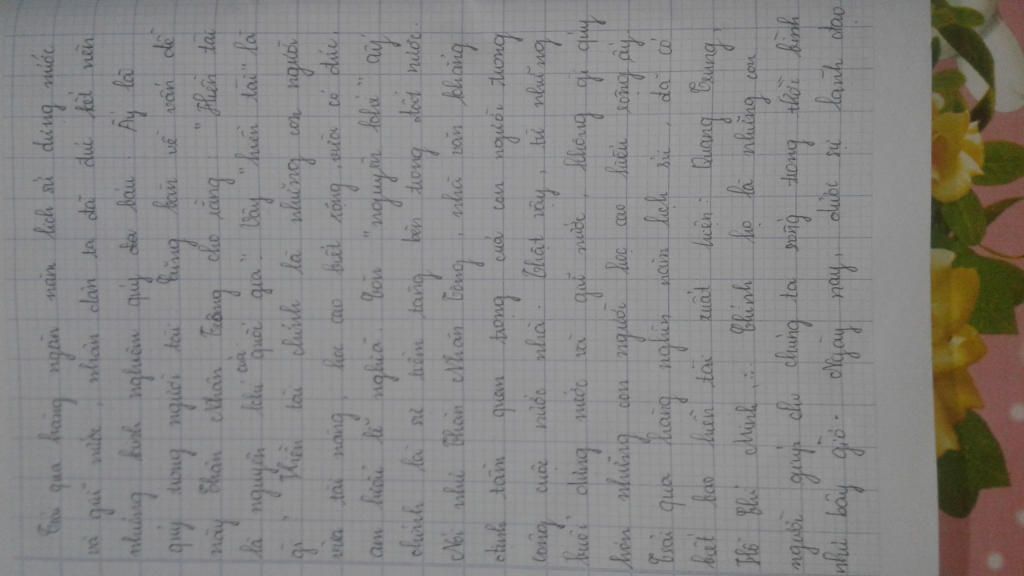 Trải qua hàng ngàn năm lịch sử dựng nước
và giữ nước, nhân dân ta đã đúc kết nên
những kinh nghiệm quý báu. Ấy là
quý trọng người tài. Cũng bàn về vấn đề
này Thân Nhân Trung cho rằng: "Hiền tài
là nguyên khí của quốc gia". Vậy "hiền tài" là
gì? Hiền tài chính là những con người
vừa tài năng, học cao biết rộng, vừa có đức,
am hiểu lễ nghĩa. Còn "nguyên khí" ấy
chính là sự tiềm tàng bên trong đất nước.
Nói như Thân Nhân Trung, nhà văn khẳng
định tầm quan trọng của con người trong
công cuộc nước nhà. Thật vậy, từ những
buổi dựng nước và giữ nước, không gì quý
hơn những con người học cao hiểu rộng ấy.
Trải qua hàng nghìn năm lịch sử, đã có
biết bao hiền tài xuất hiện: Quang Trung,
Hồ Chí Minh,... Chính họ là những con
người giúp cho chúng ta sống trong thời bình
như bây giờ. Ngày nay, dưới sự lãnh đạo